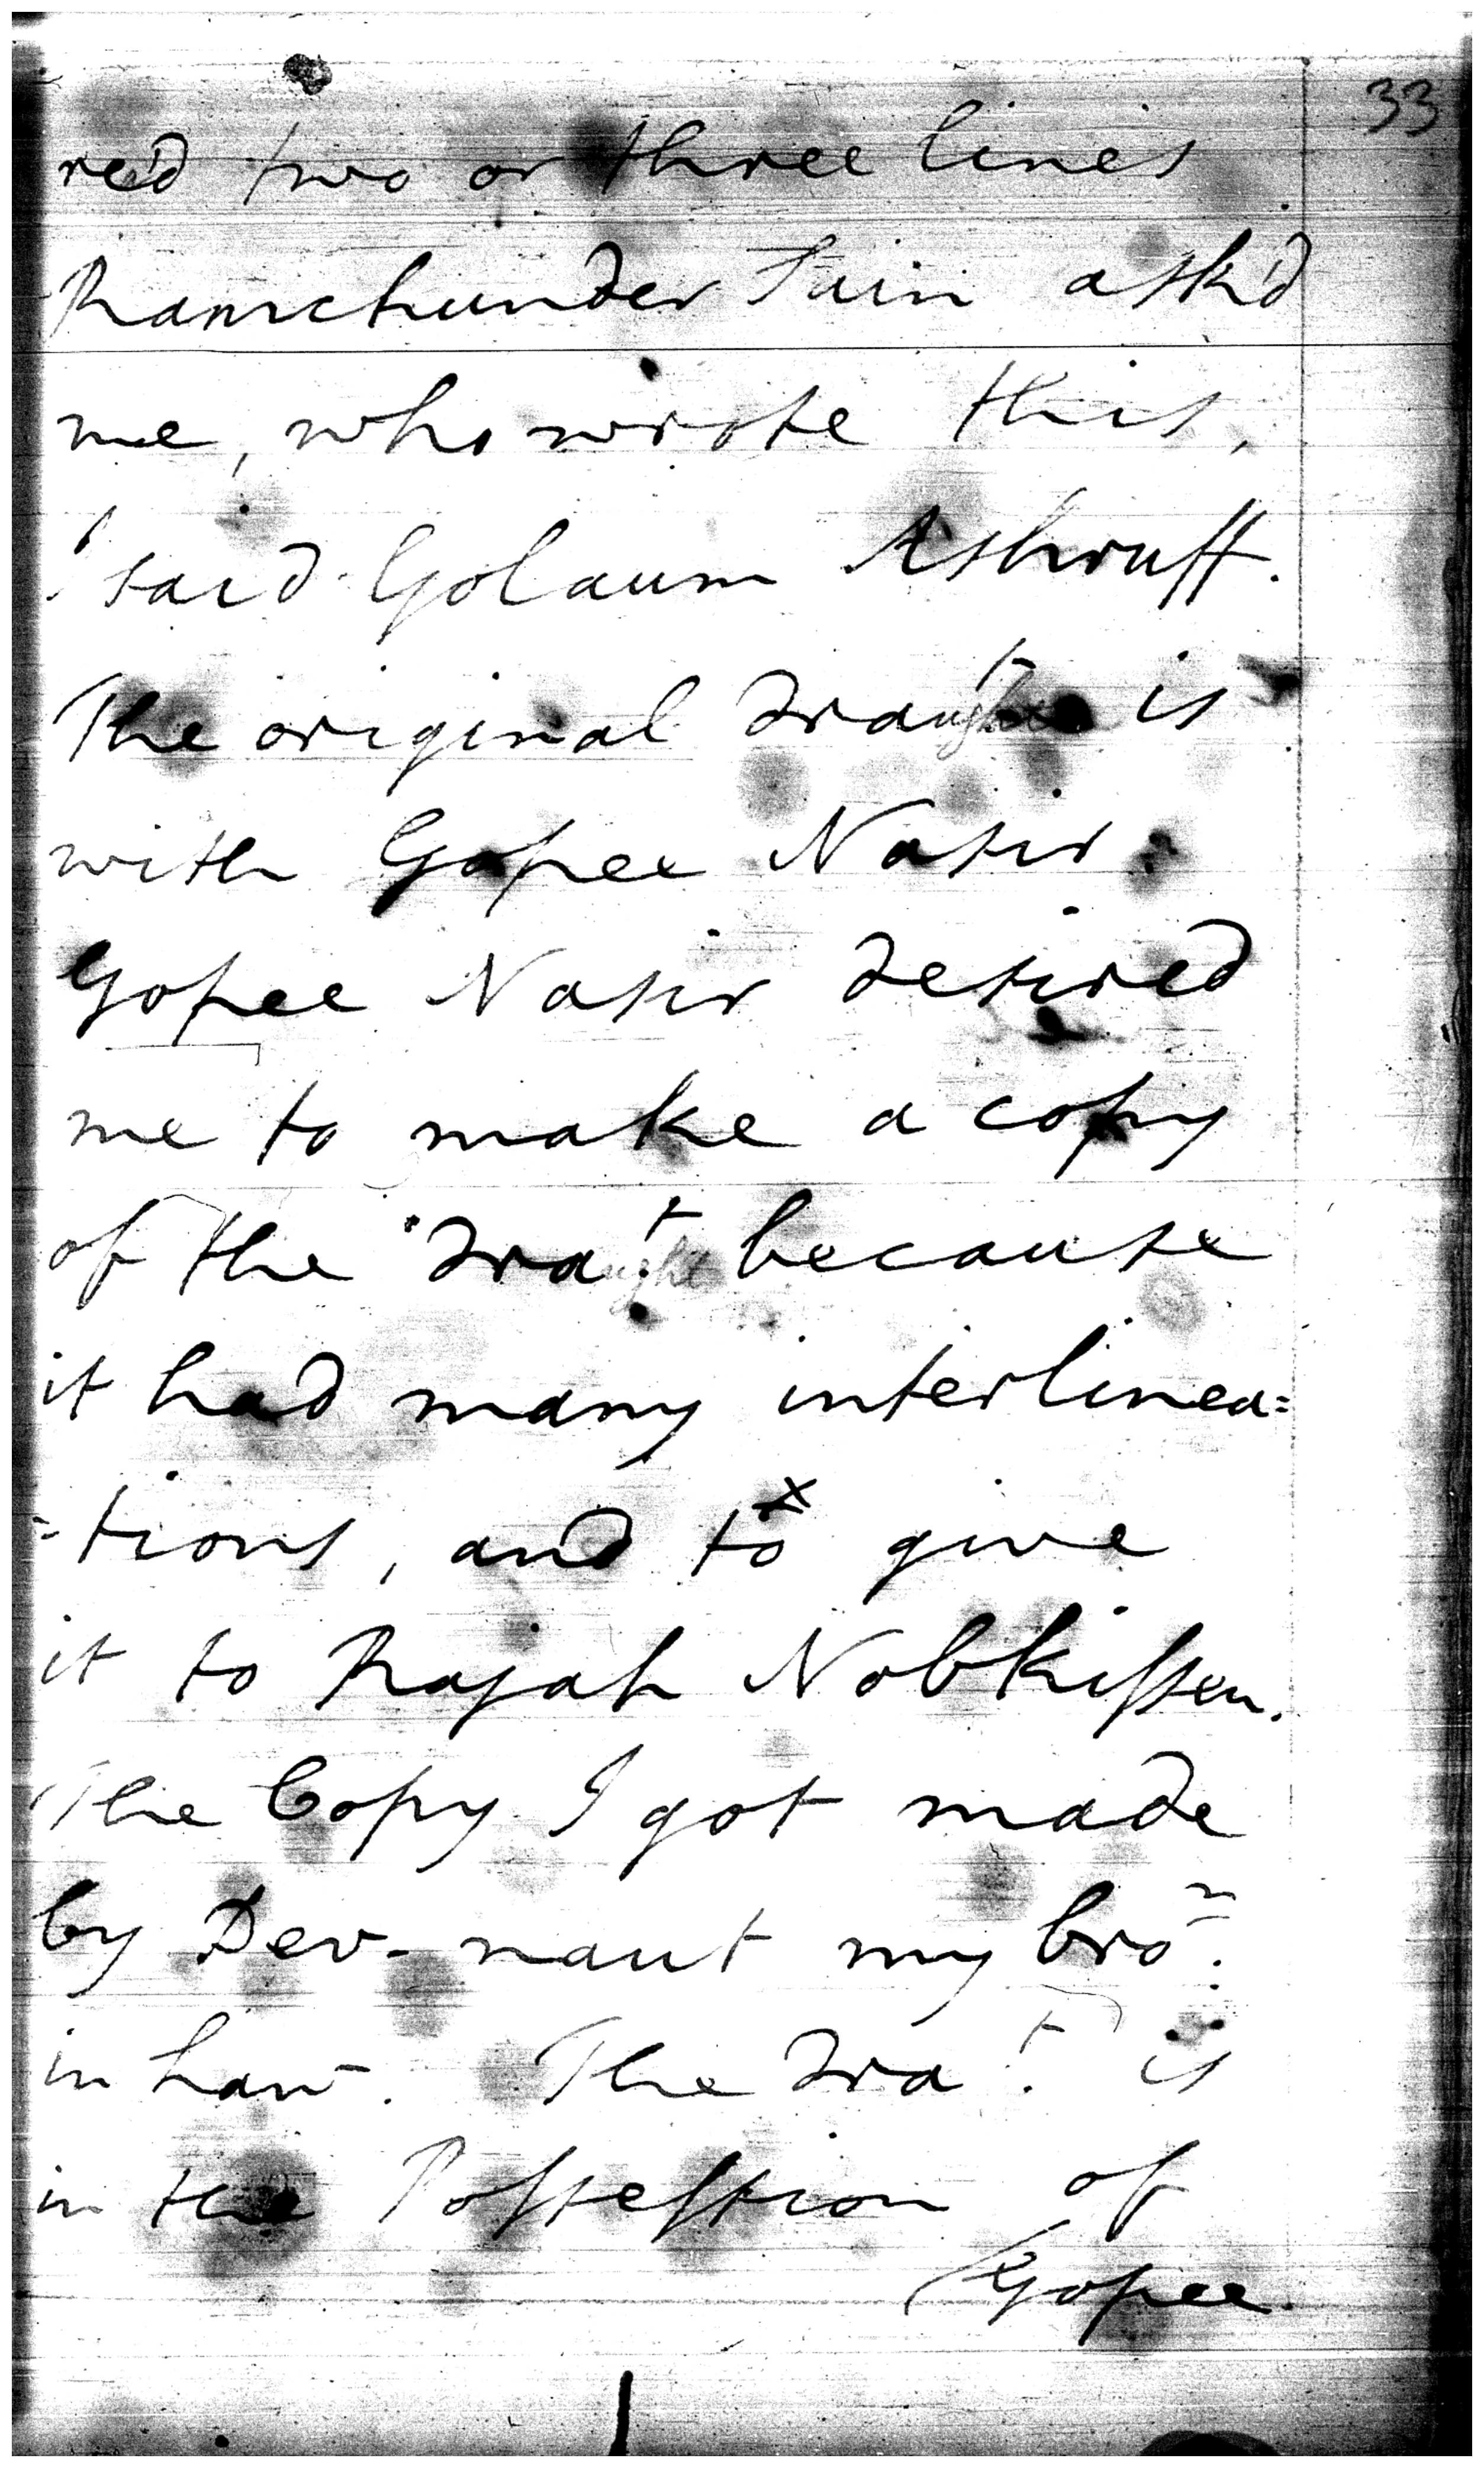 33
re'd two or three lines
Ramchunder Sain ask'd
me, who wrote this,
I said Golaum Ashruff.
The original Draught is
with Gopee Nasir
Gopee Nasir desired
me to make a copy
of the Dra.t because
it had many interlinea=
=tions, and to x give
it to Rajah Nobkissen.
The Copy I got made
by Dev-naut my bro.r
in Law. The Dra.t is
in the Possession of
Gopee